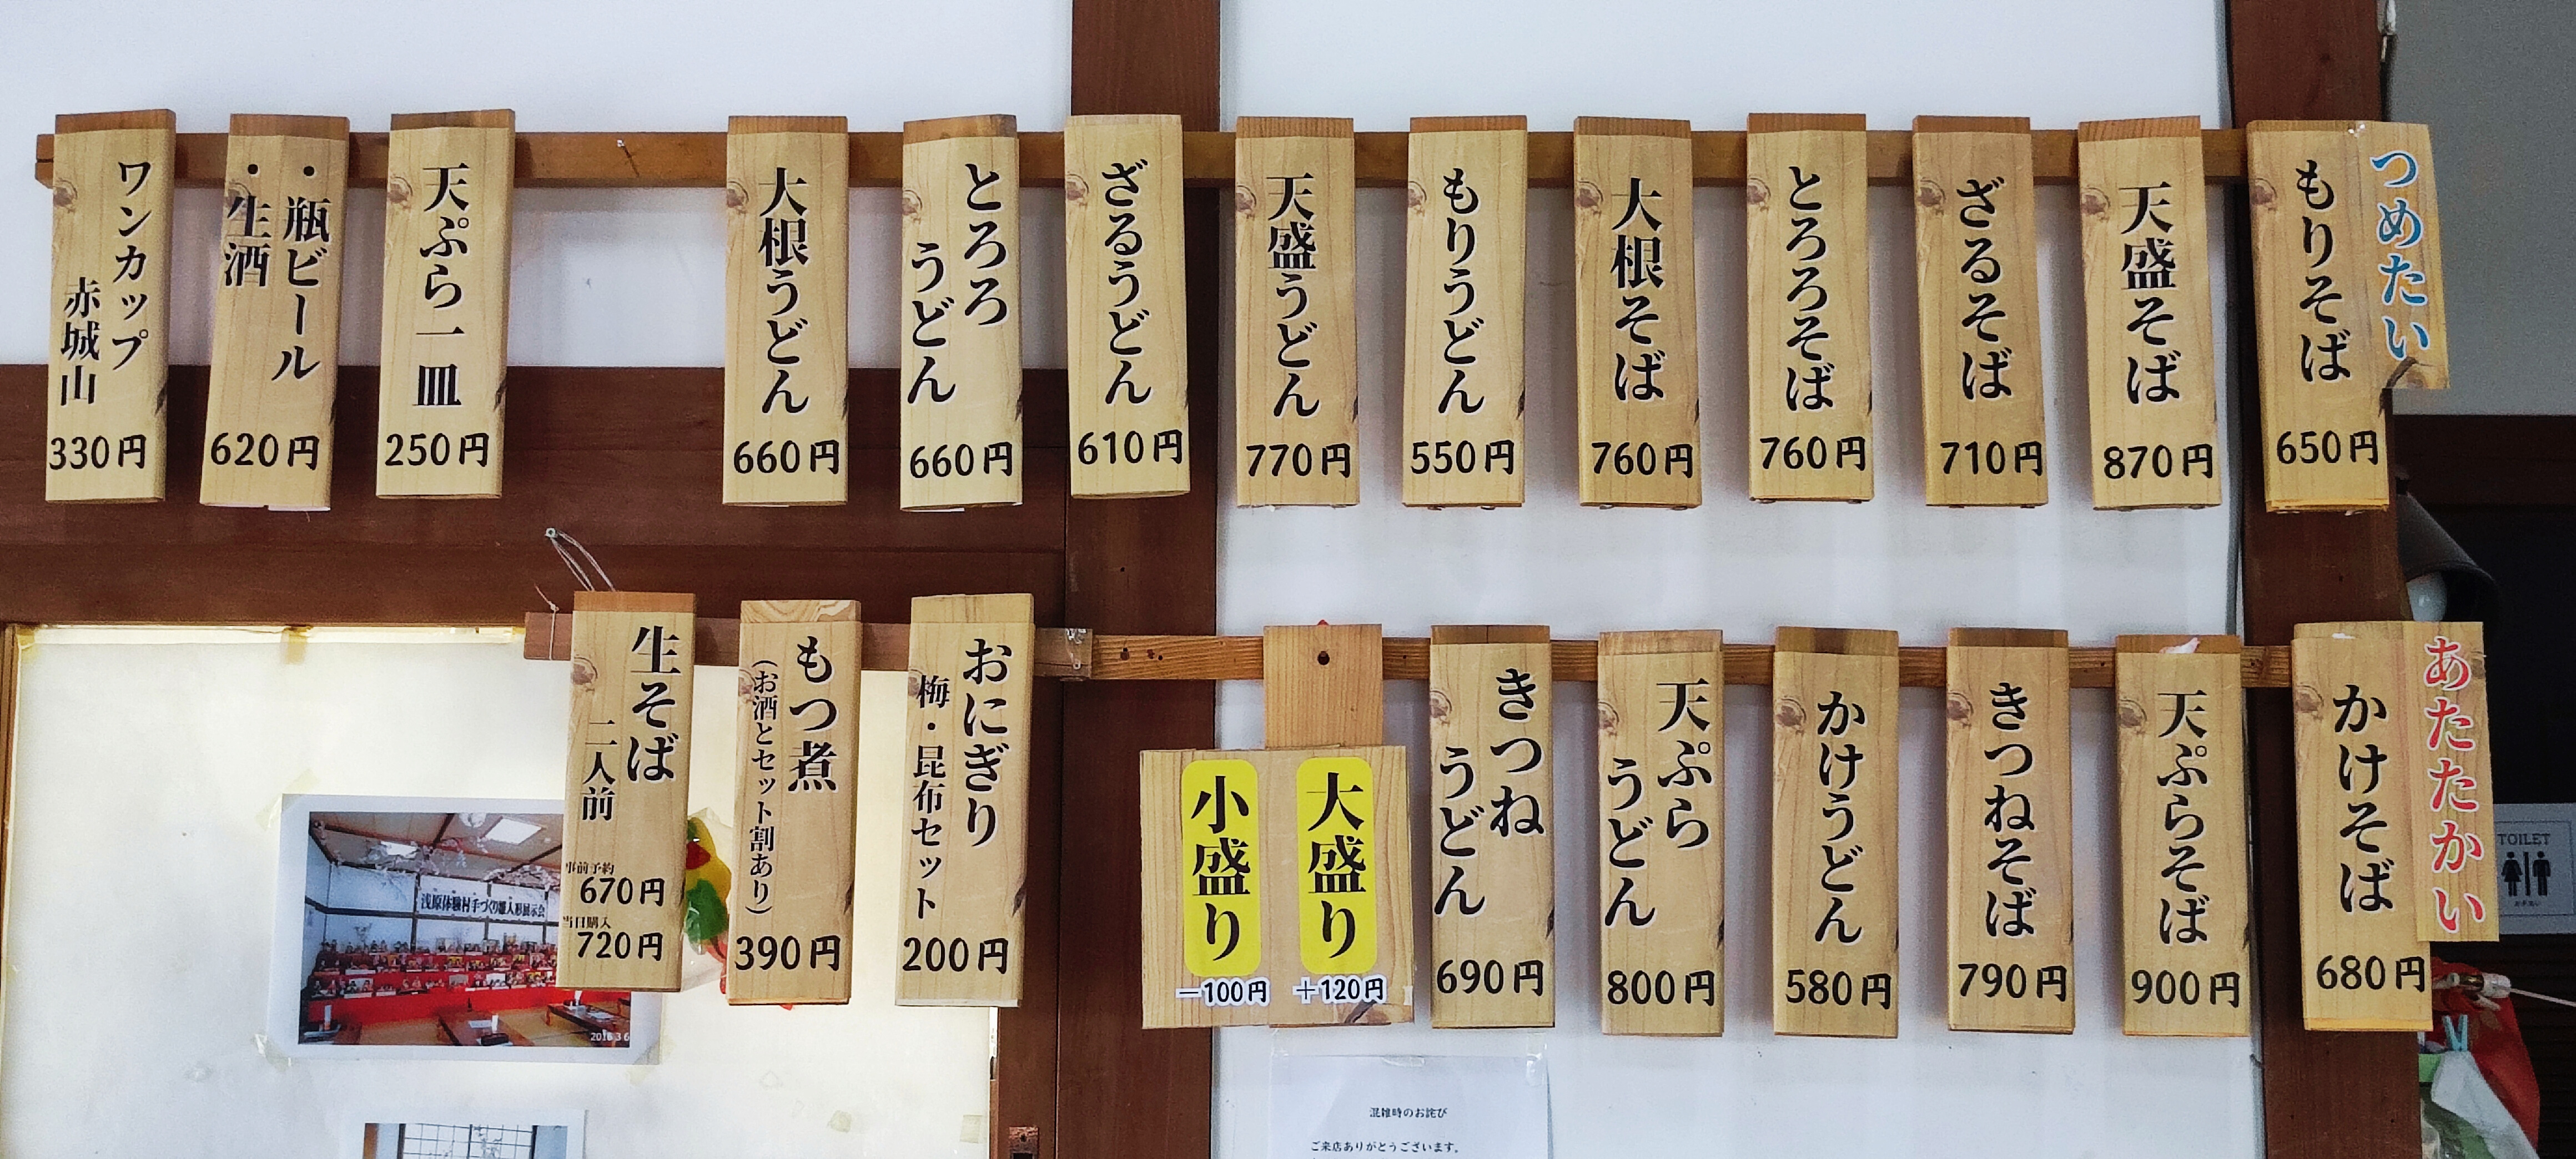 つめたい
もりそば
650円
天盛そば
870円
ざるそば
710円
とろろそば
760円
大根そば
760円
もりうどん
550円
天盛うどん
770円
ざるうどん
610円
とろろ
うどん
660円
大根うどん
660円
天ぷら一皿
250円
・瓶ビール
・生酒
620円
ワンカップ
赤城山
330円
あたたかい
かけそば
680円
天ぷらそば
900円
きつねそば
790円
かけうどん
580円
天ぷら
うどん
800円
きつね
うどん
690円
大盛り
+120円
小盛り
-100円
おにぎり
梅・昆布セット
200円
もつ煮
(お酒とセット割あり)
390円
生そば
二人前
事前予約
670円
当日購入
720円
浅原体験村手づくり雛人形展示会
2016 3 6
TOILET
混雑時のお詫び
ご来店ありがとうございます。